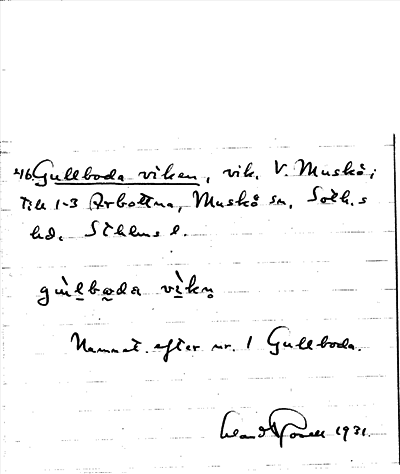 46. Gullboda viken, vik, V. Muskö;
till 1-3 Arbottna, Muskö sn, Soth.s
hd. Sthlms l.
gùlbo̱da vìkn̥
Namnat efter nr. 1 Gullboda.
1931